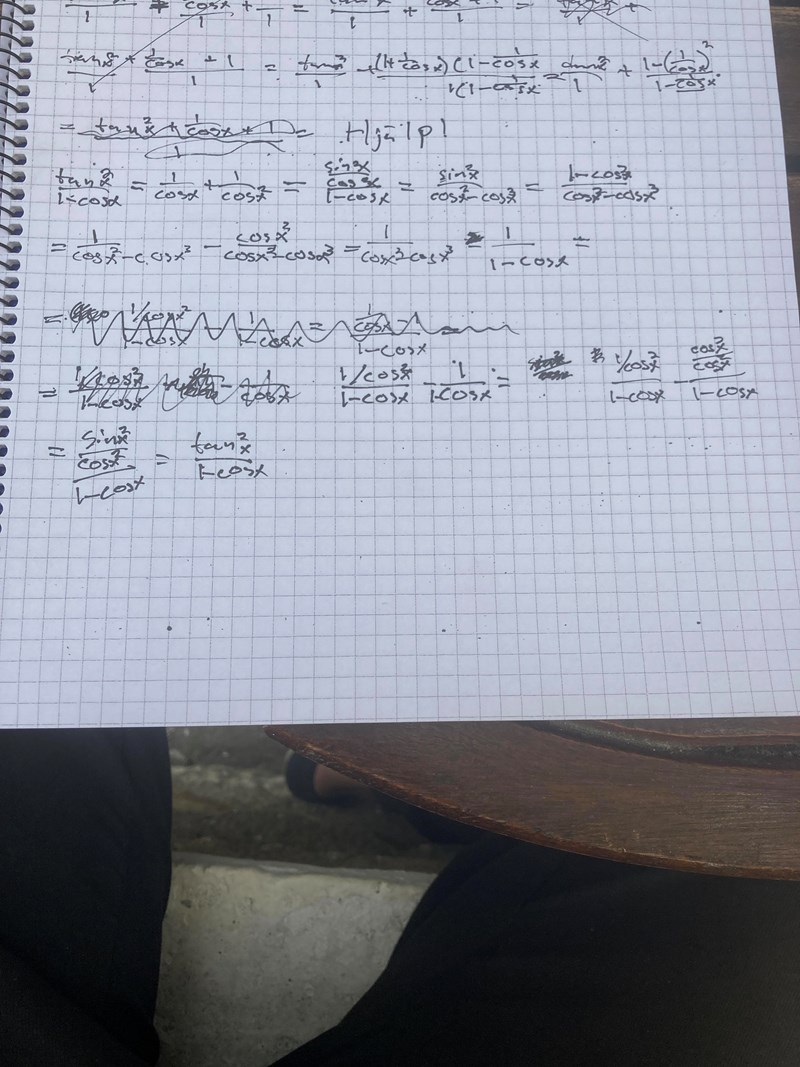 1 cosx/1 + /1 = /1 + /1 =
tanx²/1 + 1/cosx + 1/1 = tanx²/1 + (1+1/cosx)(1-1/cosx/1(1-1/cosx = tanx²/1 + 1-(1/cosx)²/1-1/cosx
= tanx² + 1/cosx + 1/1 = Hjälp!
tanx²/1-cosx = 1/cosx + 1/cosx² = sin²x/cos²x/1-cosx = sinx²/cosx²-cosx³ = 1-cosx²/cosx²-cosx³
= 1/cosx²-cosx³ - cosx²/cosx²-cosx³ = 1/cosx²-cosx³ - 1/1-cosx =
= 1/cosx²/1-cosx 1/1-cosx = 1/cosx² - 1/1-cosx =
= 1/cosx²/1-cosx - 1/cosx 1/cosx²/1-cosx - 1/1-cosx = 1/cosx²/1-cosx - cosx²/cosx²/1-cosx
= sinx²/cosx²/1-cosx = tanx²/1-cosx